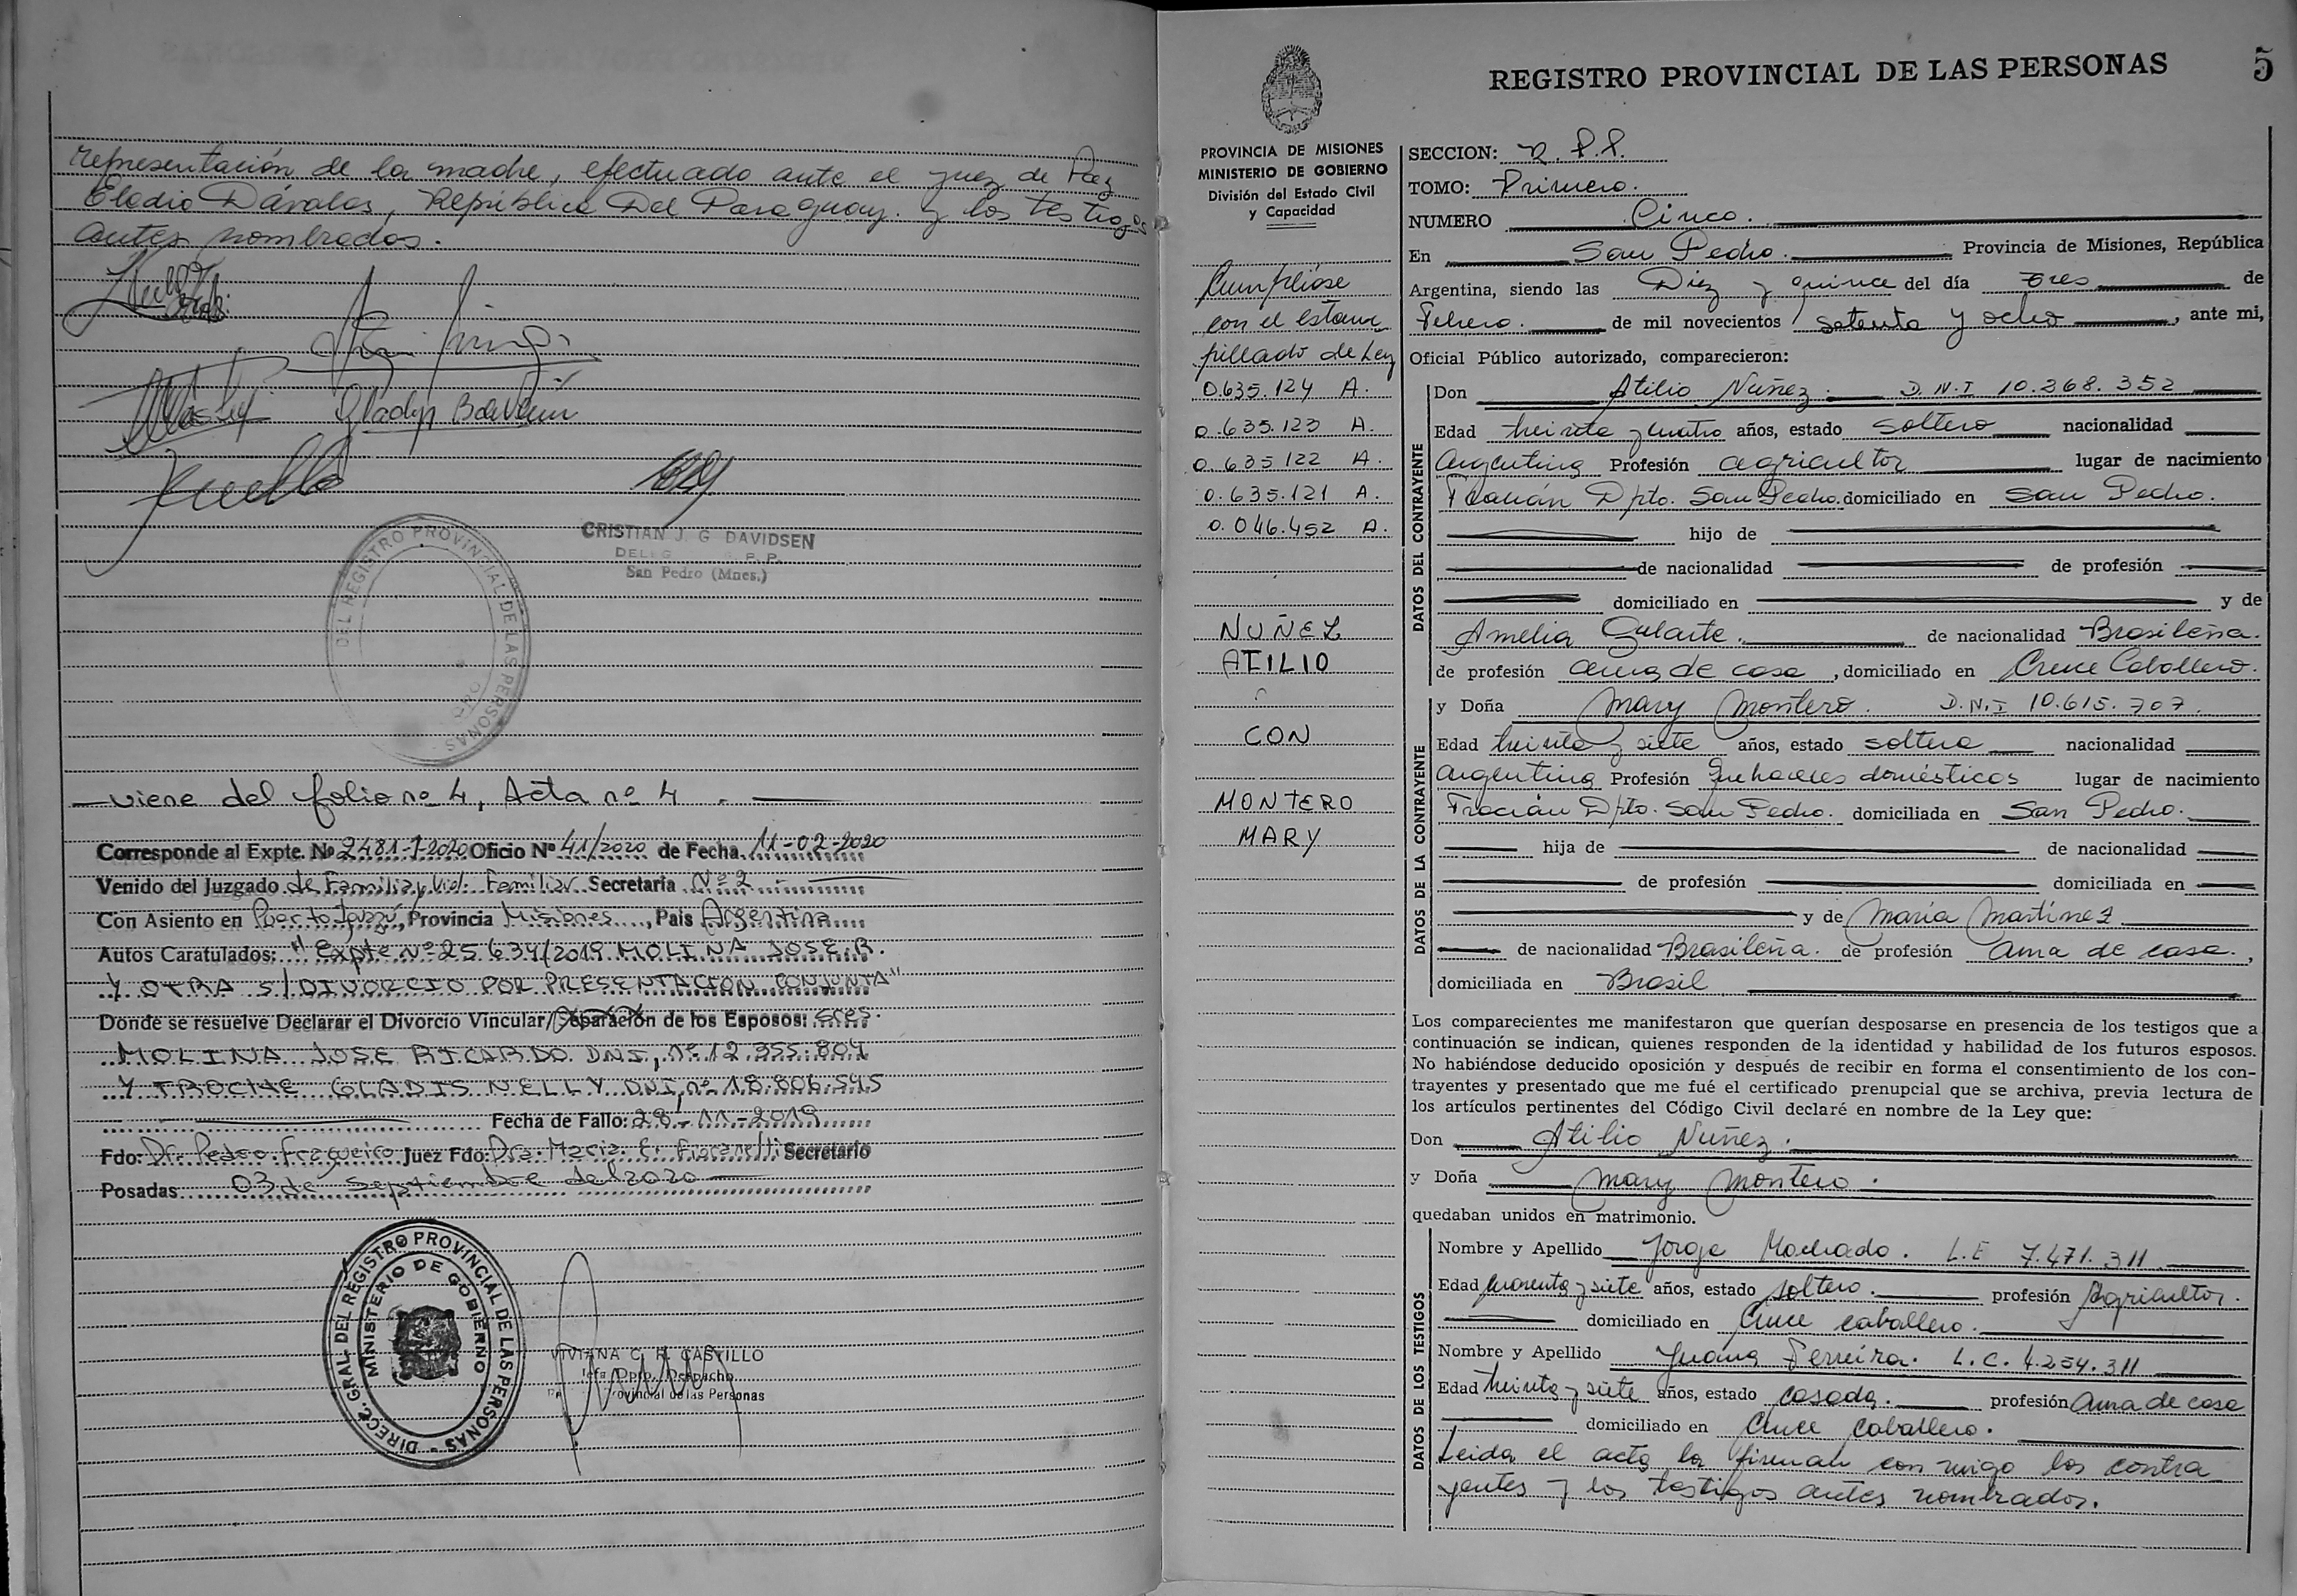 representación de la madre, efectuado ante el juez de Paz
Eladio Dávalos, República Del Paraguay. y los testigos
antes nombrados.
Gladys
CRISTIAN J. G. DAVIDSEN
San Pedro (Mnes.)
DEL REGISTRO PROVINCIAL DE LAS PERSONAS
— viene del folio nº 4, Acta nº 4 . —
Corresponde al Expte. Nº 2481-7-2020 Oficio Nº 41/2020 de Fecha 11-02-2020
Venido del Juzgado de Familia y Viol. Familiar Secretaria Nº 2 . —
Con Asiento en Puerto Iguazú, Provincia Misiones, Pais Argentina
Autos Caratulados: "Expte Nº 25.634/2019 MOLINA JOSE R.
Y OTRA S/ DIVORCIO POR PRESENTACION CONJUNTA"
Donde se resuelve Declarar el Divorcio Vincular/Separación de los Esposos: Sres.
MOLINA JOSE RICARDO DNI, nº 12.355.804
Y TROCHE GLADIS NELLY DNI, nº 18.806.545
Fecha de Fallo: 28-11-2019
Fdo: Dr. Pedro Fragueiro Juez Fdo: Dra. Secretario
Posadas 03 de Septiembre del 2020 —
DIRECC. GRAL. DEL REGISTRO PROVINCIAL DE LAS PERSONAS
MINISTERIO DE GOBIERNO
VIVIANA C. R. CASTILLO
Jefa Dpto. Despacho
Provincial de las Personas
REGISTRO PROVINCIAL DE LAS PERSONAS 5
PROVINCIA DE MISIONES
MINISTERIO DE GOBIERNO
División del Estado Civil
y Capacidad
Cumpliose
con el estam
pillado de Ley
0.635.124 A.
0.635.123 A.
0.635.122 A.
0.635.121 A.
0.046.452 A.
NUÑEZ
ATILIO
CON
MONTERO
MARY
SECCION: R.P.P.
TOMO: Primero.
NUMERO Cinco.
En San Pedro. Provincia de Misiones, República
Argentina, siendo las Diez y quince del día tres de
Febrero. de mil novecientos setenta y ocho, ante mi,
Oficial Público autorizado, comparecieron:
DATOS DEL CONTRAYENTE
Don Atilio Nuñez. D.N.I 10.268.352
Edad treinta y cuatro años, estado soltero nacionalidad
argentina Profesión agricultor lugar de nacimiento
Fracrán Dpto. San Pedro. domiciliado en San Pedro.
hijo de
de nacionalidad de profesión
domiciliado en y de
Amelia Gularte. de nacionalidad Brasileña.
de profesión ama de casa, domiciliado en Cruce Caballero.
DATOS DE LA CONTRAYENTE
y Doña Mary Montero. D.N.I 10.615.707.
Edad treinta y siete años, estado soltera nacionalidad
argentina Profesión Quehaceres domésticos lugar de nacimiento
Fracrán Dpto. San Pedro. domiciliada en San Pedro.
hija de de nacionalidad
de profesión domiciliada en
y de María Martínez
de nacionalidad Brasileña. de profesión Ama de casa.,
domiciliada en Brasil
Los comparecientes me manifestaron que querían desposarse en presencia de los testigos que a
continuación se indican, quienes responden de la identidad y habilidad de los futuros esposos.
No habiéndose deducido oposición y después de recibir en forma el consentimiento de los con-
trayentes y presentado que me fué el certificado prenupcial que se archiva, previa lectura de
los artículos pertinentes del Código Civil declaré en nombre de la Ley que:
Don Atilio Nuñez.
y Doña Mary Montero.
quedaban unidos en matrimonio.
DATOS DE LOS TESTIGOS
Nombre y Apellido Jorge Machado. L.E 7.471.311
Edad cuarenta y siete años, estado soltero. profesión Agricultor.
domiciliado en Cruce caballero.
Nombre y Apellido Juana Ferreira. L.C. 4.254.311
Edad treinta y siete años, estado casada. profesión Ama de casa
domiciliado en Cruce Caballero.
Leida el acta la firman con migo los contra
yentes y los testigos antes nombrados.